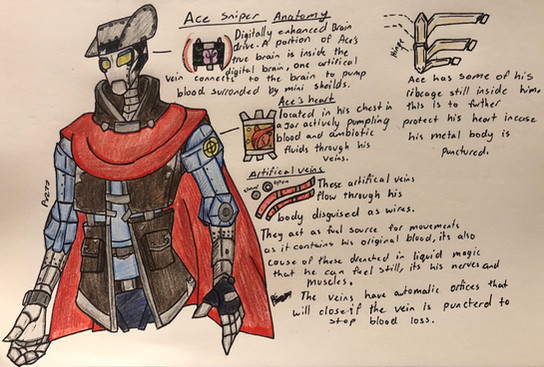 Ace Sniper Anatomy
Digitally enhanced Brain
drive. A portion of Ace's
true brain is inside the
digital brain, one artifical
vein connects to the brain to pump
blood surronded by mini sheilds.
Ace's heart
located in his chest in
a jar actively pumpling
blood and ambiotic
fluids through his
veins.
Artifical veins
These artifical veins
flow through his
body disguised as wires.
They act as fuel source for movements
as it contains his original blood, its also
cause of these drenched in liquid magic
that he can feel still, its his nerves and
muscles.
The veins have automatic orfices that
will close if the vein is puncterd to
stop blood loss.
Hinge
Ace has some of his
ribcage still inside him,
this is to futher
protect his heart incase
his metal body is
punctured.